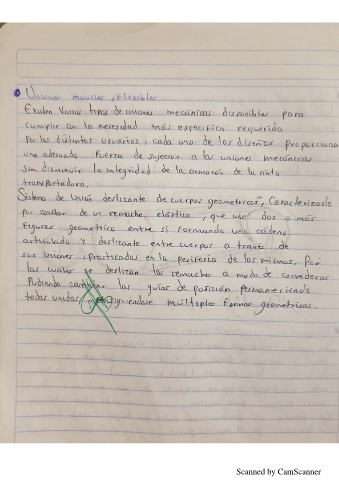 Uniones moviles, flexibles
Existen varios tipos de uniones mecánicas disponibles para
cumplir con la necesidad más especifica requerida
por los distintos usuarios, cada uno de los diseños proporciona
una adecuada fuerza de sujecion a las uniones mecánicas
sin disminuir la integridad de la armazón de la cinta
transportadora.
Sistema de unión deslizante de cuerpos geometricos", Caracterizado
por constar de un remache elástico, que une dos o más
figuras geometrica entre sí formando una cadena
articulada y deslizante entre cuerpos a través de
sus uniones, practicadas en la periferia de los mismos, por
las cuales se deslizan los remaches a modo de correderas
Pudiendo cambiar las guías de posición permaneciendo
todas unidas, múltiples formas geometricas.
Scanned by CamScanner